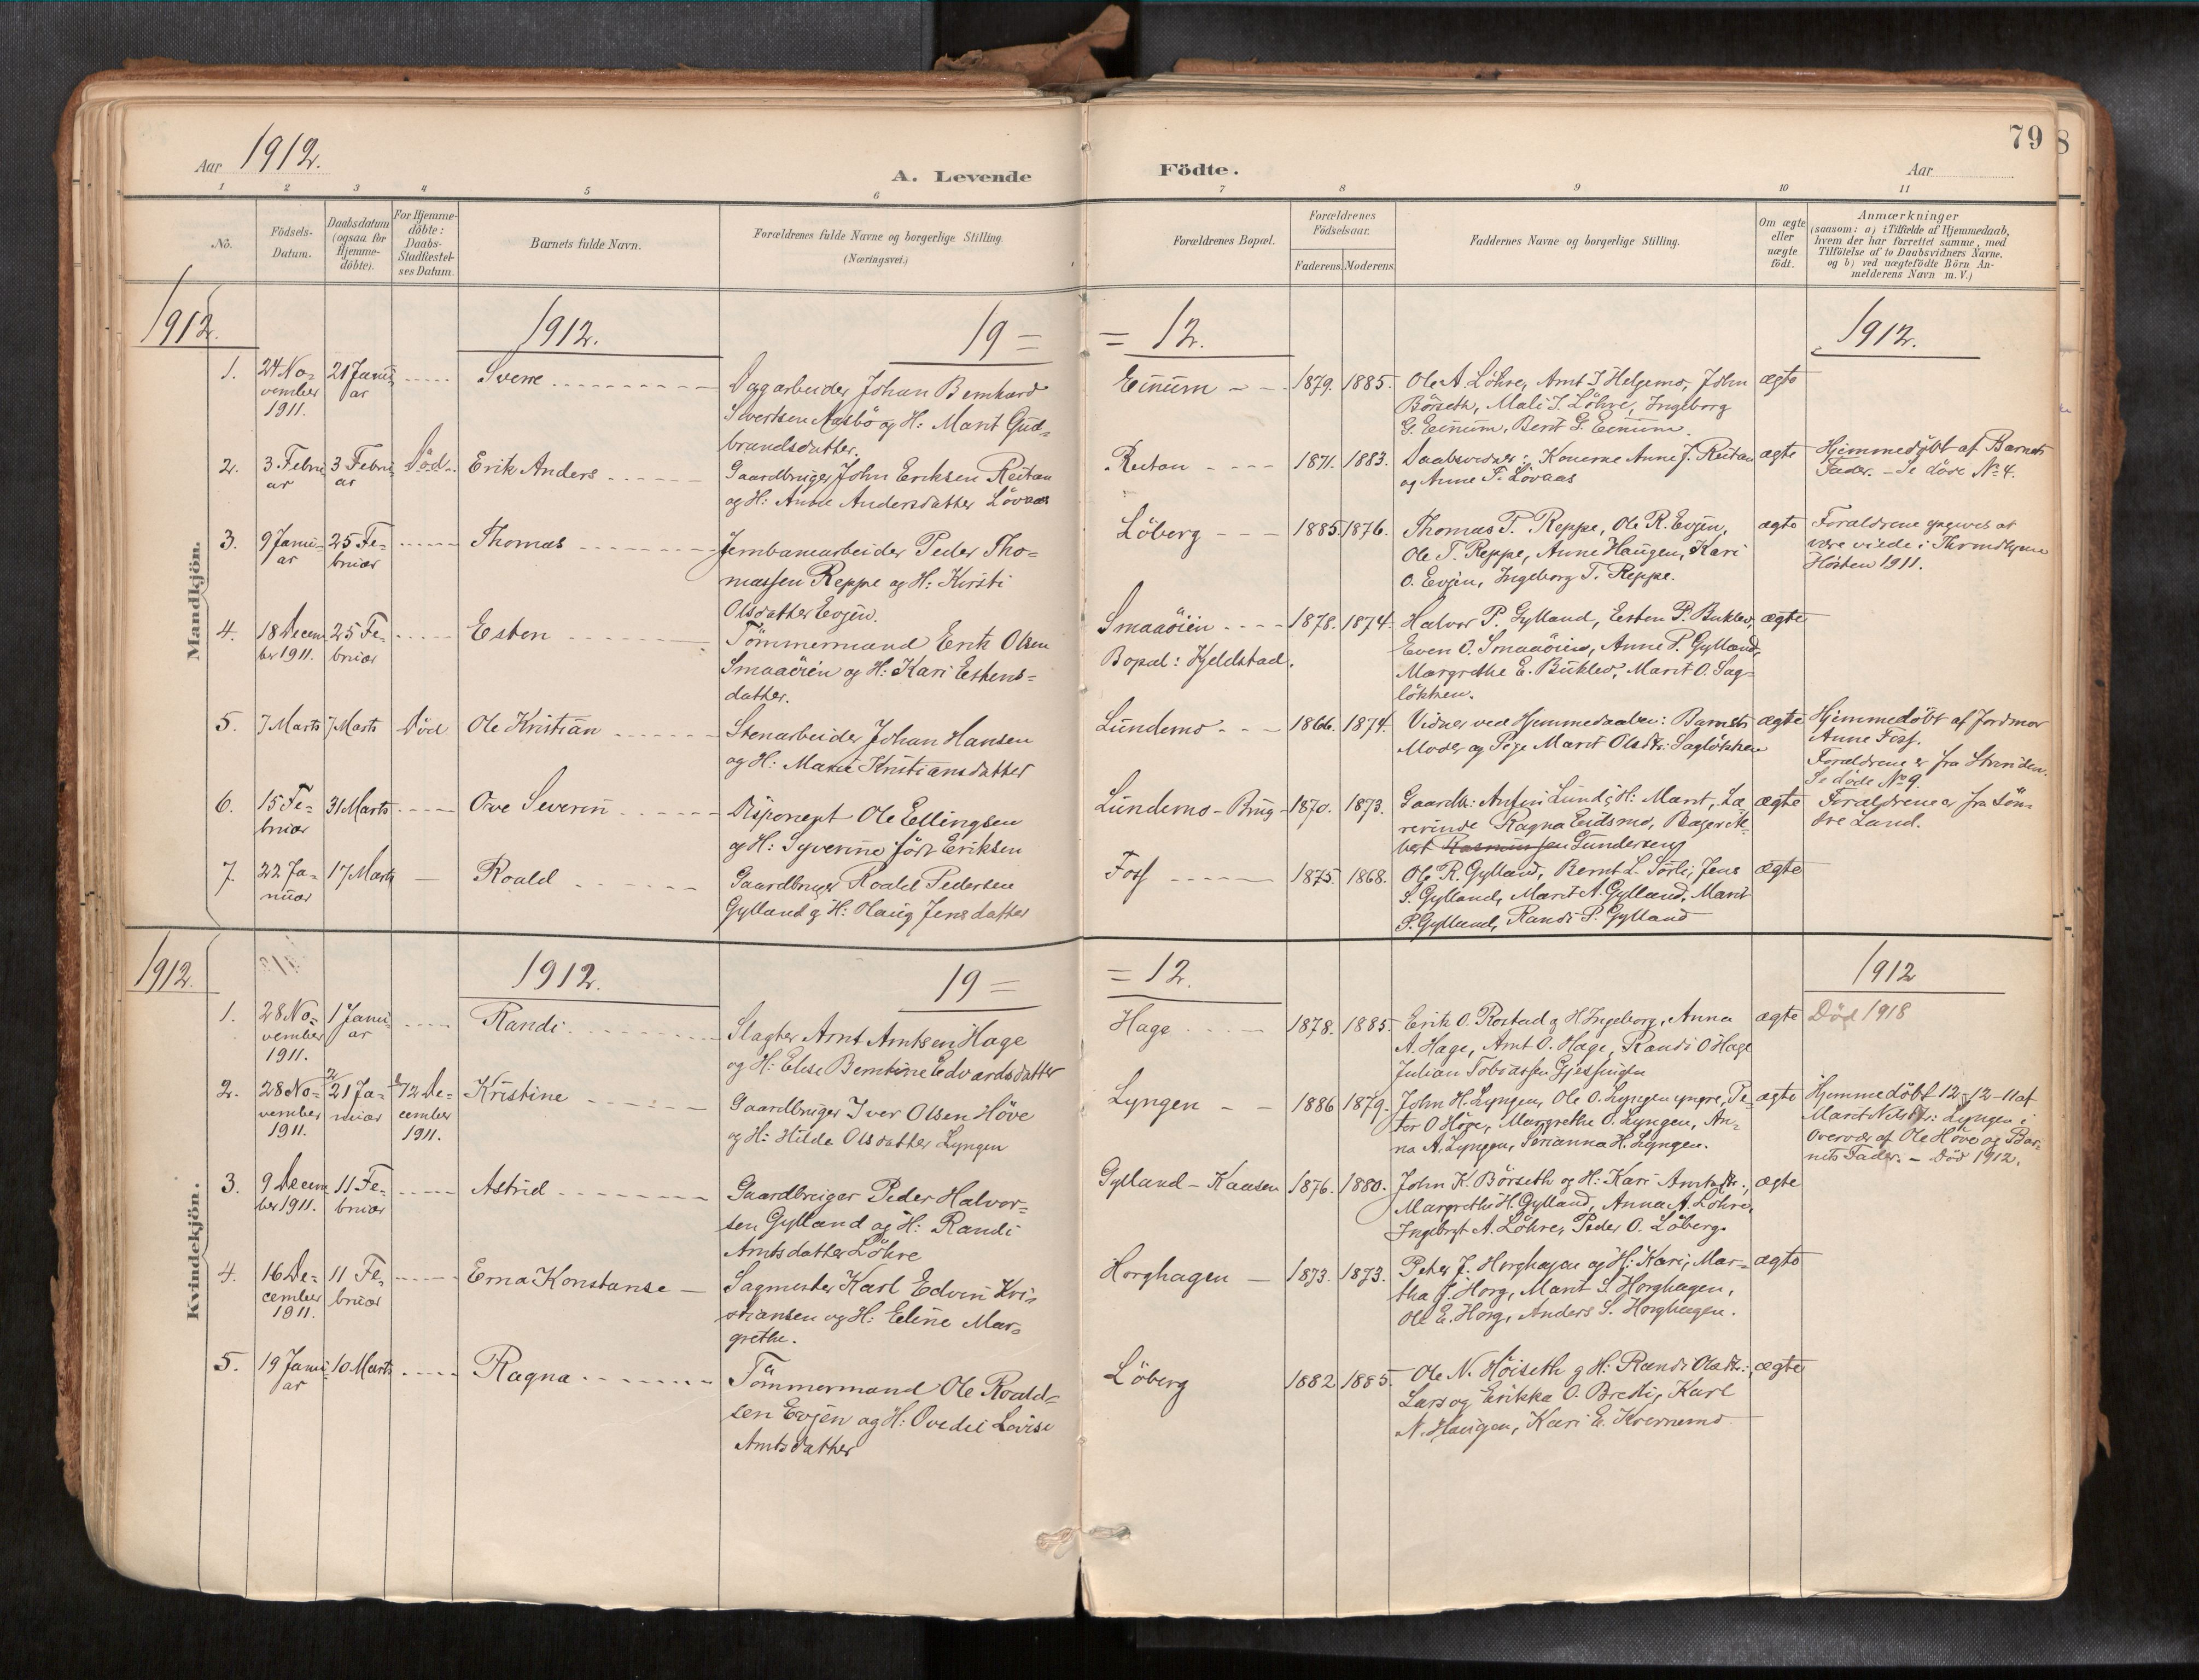 Aar 1912.
A. Levende
Födte.
Aar
79
8
1
2
3
4
5
6
7
8
9
10
11
No.
Födsels-
Datum.
Daabsdatum
(ogsaa for
Hjemme-
döbte).
For Hjemme-
döbte:
Daabs-
Stadfæstel-
ses Datum.
Barnets fulde Navn.
Forældrenes fulde Navne og borgerlige Stilling.
(Næringsvei.)
Forældrenes Bopæl.
Forældrenes
Födselsaar.
Faderens.
Moderens.
Faddernes Navne og borgerlige Stilling.
Om ægte
eller
uægte
födt.
Anmærkninger
(saasom: a) i Tilfælde af Hjemmedaab,
hvem der har forrettet samme, med
Tilföielse af to Daabsvidners Navne.
og b) ved uægtefödte Börn An-
melderens Navn m. V.)
Mandkjön.
1912.
1912.
19 =
= 12.
1912.
1.
24 No-
vember
1911.
21 Janu-
ar
Sverre
Daggarbeider Johan Bernhard
Sivertsen Aasbö og H: Marit Gud-
brandsdatter.
Einum
1879.
1885.
Ole A. Löhre, Arnt J Helgemo, John
Börseth, Mali J. Löhre, Ingeborg
G. Einum, Berit G. Einum.
ægte
2.
3 Febru
ar
3 Febru
ar
Död.
Erik Anders
Gaardbruger John Eriksen Reitan
og H: Anne Andersdatter Lövaas
Reitan
1871.
1883.
Daabsvidner: Konerne Anne J. Reitan
og Anne F. Lövaas
ægte
Hjemmedöbt af Barnets
Fader. - Se döde No 4.
3.
9 Janu-
ar
25 Fe-
bruar
Thomas
Jernbanearbeider Peder Tho-
massen Reppe og H: Kirsti
Olsdatter Evjen.
Löberg
1885.
1876.
Thomas P. Reppe, Ole R. Evjen,
Ole T. Reppe, Anne Haugen, Kari
O. Evjen, Ingeborg T. Reppe.
ægte
Forældrene opgives at
være viede i Throndhjem
Hösten 1911.
4.
18 Decem
ber 1911.
25 Fe-
bruar
Esten
Tömmermand Erik Olsen
Smaaöien og H: Kari Estens-
datter.
Smaaöien
Bopæl: Kjeldstad.
1878.
1874.
Halvor P. Gylland, Esten P. Buklev,
Even O. Smaaöien, Anne P. Gylland,
Margrethe E. Buklev, Marit O. Sag-
lökken.
ægte
5.
7 Marts
7 Marts
Död
Ole Kristian
Stenarbeider Johan Hansen
og H: Marie Kristiansdatter
Lundemo
1866.
1874.
Vidner ved Hjemmedaaben: Barnets
Moder og Pige Marit Olsdtr: Saglökken
ægte
Hjemmedöbt af Jordmor
Anne Foss.
Forældrene er fra Strinden.
Se döde No 9.
6.
15 Fe-
bruar
31 Marts
Ove Severin
Disponent Ole Ellingsen
og H: Syverine födt Eriksen
Lundemo-Brug
1870.
1873.
Gaardbr: Anfin Lund, H: Marit, Læ-
rerinde Ragna Eidsmo, Bager Al-
bert Rasmussen Gundersen
ægte
Forældrene er fra Sön-
dre Land.
7.
22 Ja-
nuar
17 Marts
Roald
Gaardbruger Roald Pedersen
Gylland og H: Olaug Jensdatter
Foss
1875.
1868.
Ole R. Gylland, Bernt L. Sörli, Jens
S. Gylland, Marit A. Gylland, Marit
P. Gylland, Randi P. Gylland
ægte
Kvindekjön.
1912.
1912.
19 =
= 12.
1912
1.
28 No-
vember
1911.
1 Janu-
ar
Randi
Slagter Arnt Arntsen Hage
og H: Elise Berntine Edvardsdatter
Hage
1878.
1885.
Erik O. Rostad og H Ingeborg, Anna
A. Hage, Arnt O. Hage, Randi O Hage
Julian Tobiassen Gjessingen
ægte
Död 1918
2.
28 No-
vember
1911.
21 Ja-
nuar
12 De-
cember
1911.
Kristine
Gaardbruger Iver Olsen Höve
og H: Hilda Olsdatter Lyngen
Lyngen
1886
1879.
John H. Lyngen, Ole O. Lyngen yngre, Pe-
ter O Höve, Margrethe O. Lyngen, An-
na A. Lyngen, Serianna H. Lyngen.
ægte
Hjemmedöbt 12-12-11 af
Marit Nelsdtr: Lyngen i
Overvær af Ole Höve og Bar-
nets Fader. - Död 1912.
3.
9 Decem
ber 1911.
11 Fe-
bruar
Astrid
Gaardbruger Peder Halvor-
sen Gylland og H: Randi
Arntsdatter Löhre
Gylland-Kaasen
1876.
1880.
John K. Börseth og H: Kari Arntsdtr:,
Margrethe H. Gylland, Anna A. Löhre,
Ingebrgt A. Löhre, Peder O. Löberg.
ægte
4.
16 De-
cember
1911.
11 Fe-
bruar
Erna Konstanse
Sagmester Karl Edvin Kri-
stiansen og H: Eline Mar-
grethe.
Horghagen
1873.
1873.
Peter J. Horghagen og H: Kari, Mar-
tha J. Horg, Marit S. Horghagen,
Ole E. Horg, Anders S. Horghagen.
ægte
5.
19 Janu-
ar
10 Marts
Ragna
Tömmermand Ole Roald-
sen Evjen og H: Ovedie Lovise
Arntsdatter
Löberg
1882
1885.
Ole N. Höiseth og H: Randi Olsdtr:,
Lars og Erikka O. Bredli, Karl
N. Haugen, Kari E. Kvernemo.
ægte